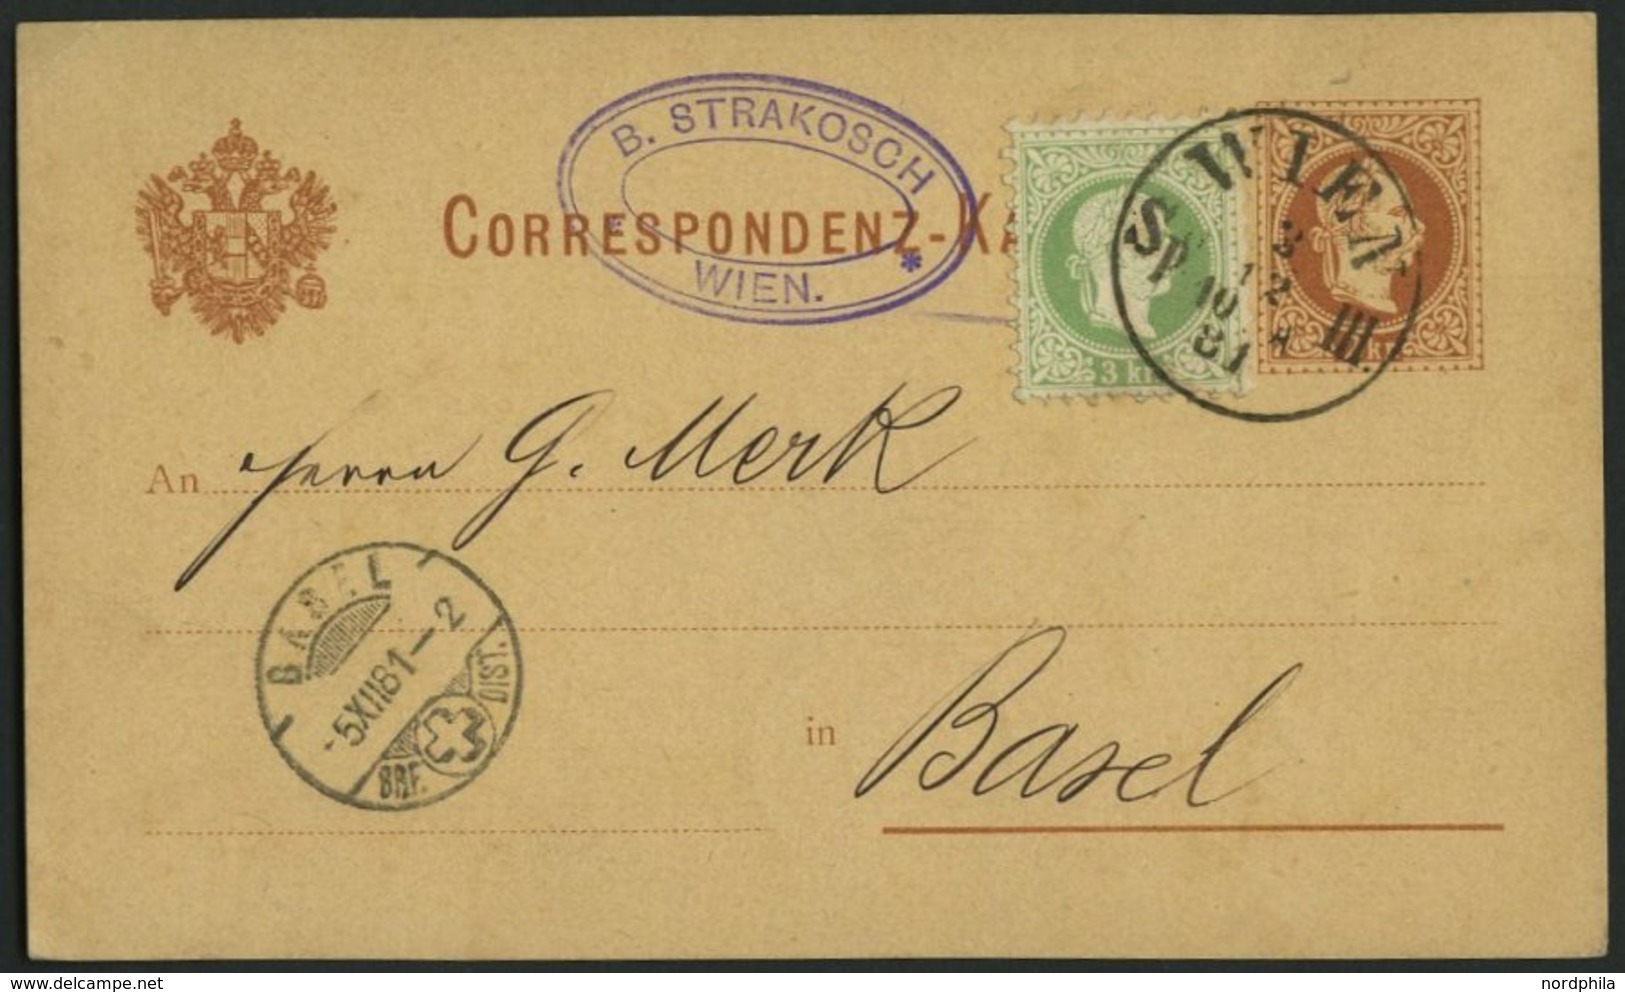 B. STRAKOSCH
WIEN.
CORRESPONDENZ-KA
3 kr
WIEN
3
12
81
III.
An Herrn G. Merk
BASEL
-5XII81-2
BRF. DIST.
in Basel
delcampe.net
nordphila